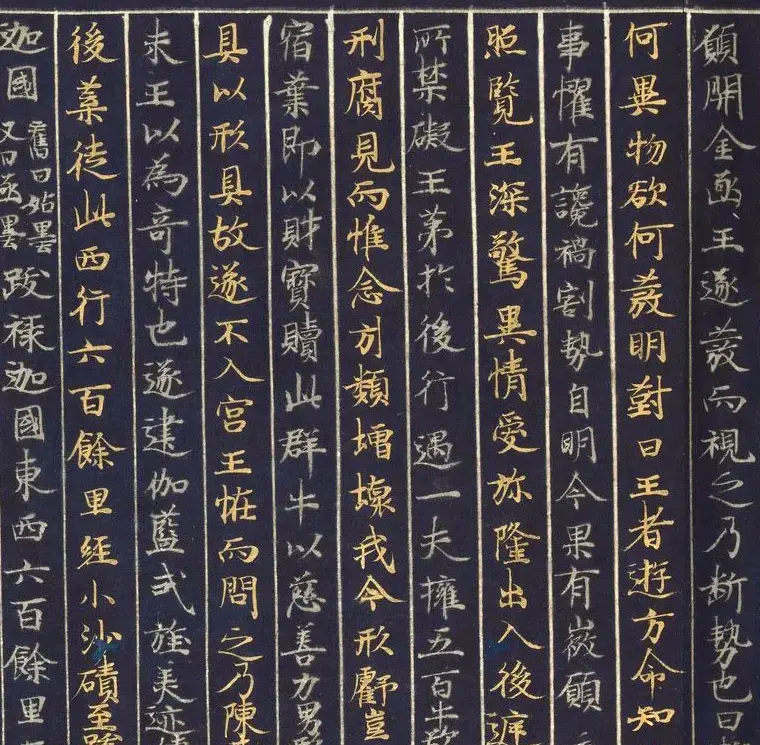 願開金函王遂發而視之乃斷勢也曰
何異物欲何發明對曰王者遊方命知
事懼有讒禍割勢自明今果有徵願
照覽王深驚異情愛弥隆出入後庭
所禁礙王弟於後行遇一夫擁五百牛欲
刑腐見而惟念引類增壞我今形虧豈
宿業即以財寶贖此群牛以慈善力男
具以形具故遂不入宮王恠而問之乃陳
末王以為奇特也遂建伽藍式旌美迹
後葉從此西行六百餘里經小沙磧至跋
迦國舊曰姑墨又曰亟墨跋祿迦國東西六百餘里